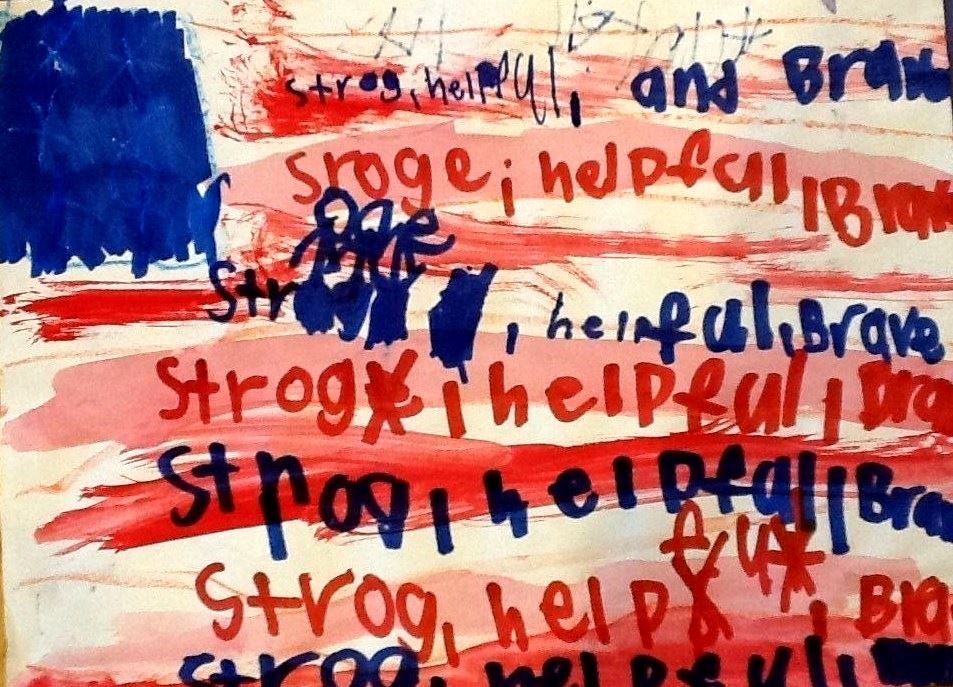 strog, helpful, and Brave
Sroge, helpfull, Brav
Str, heinful, Brave
Strog, helpful, Bra
Strog, helpfull, Brav
Strog, help ful, Bra
Strog, helpful,